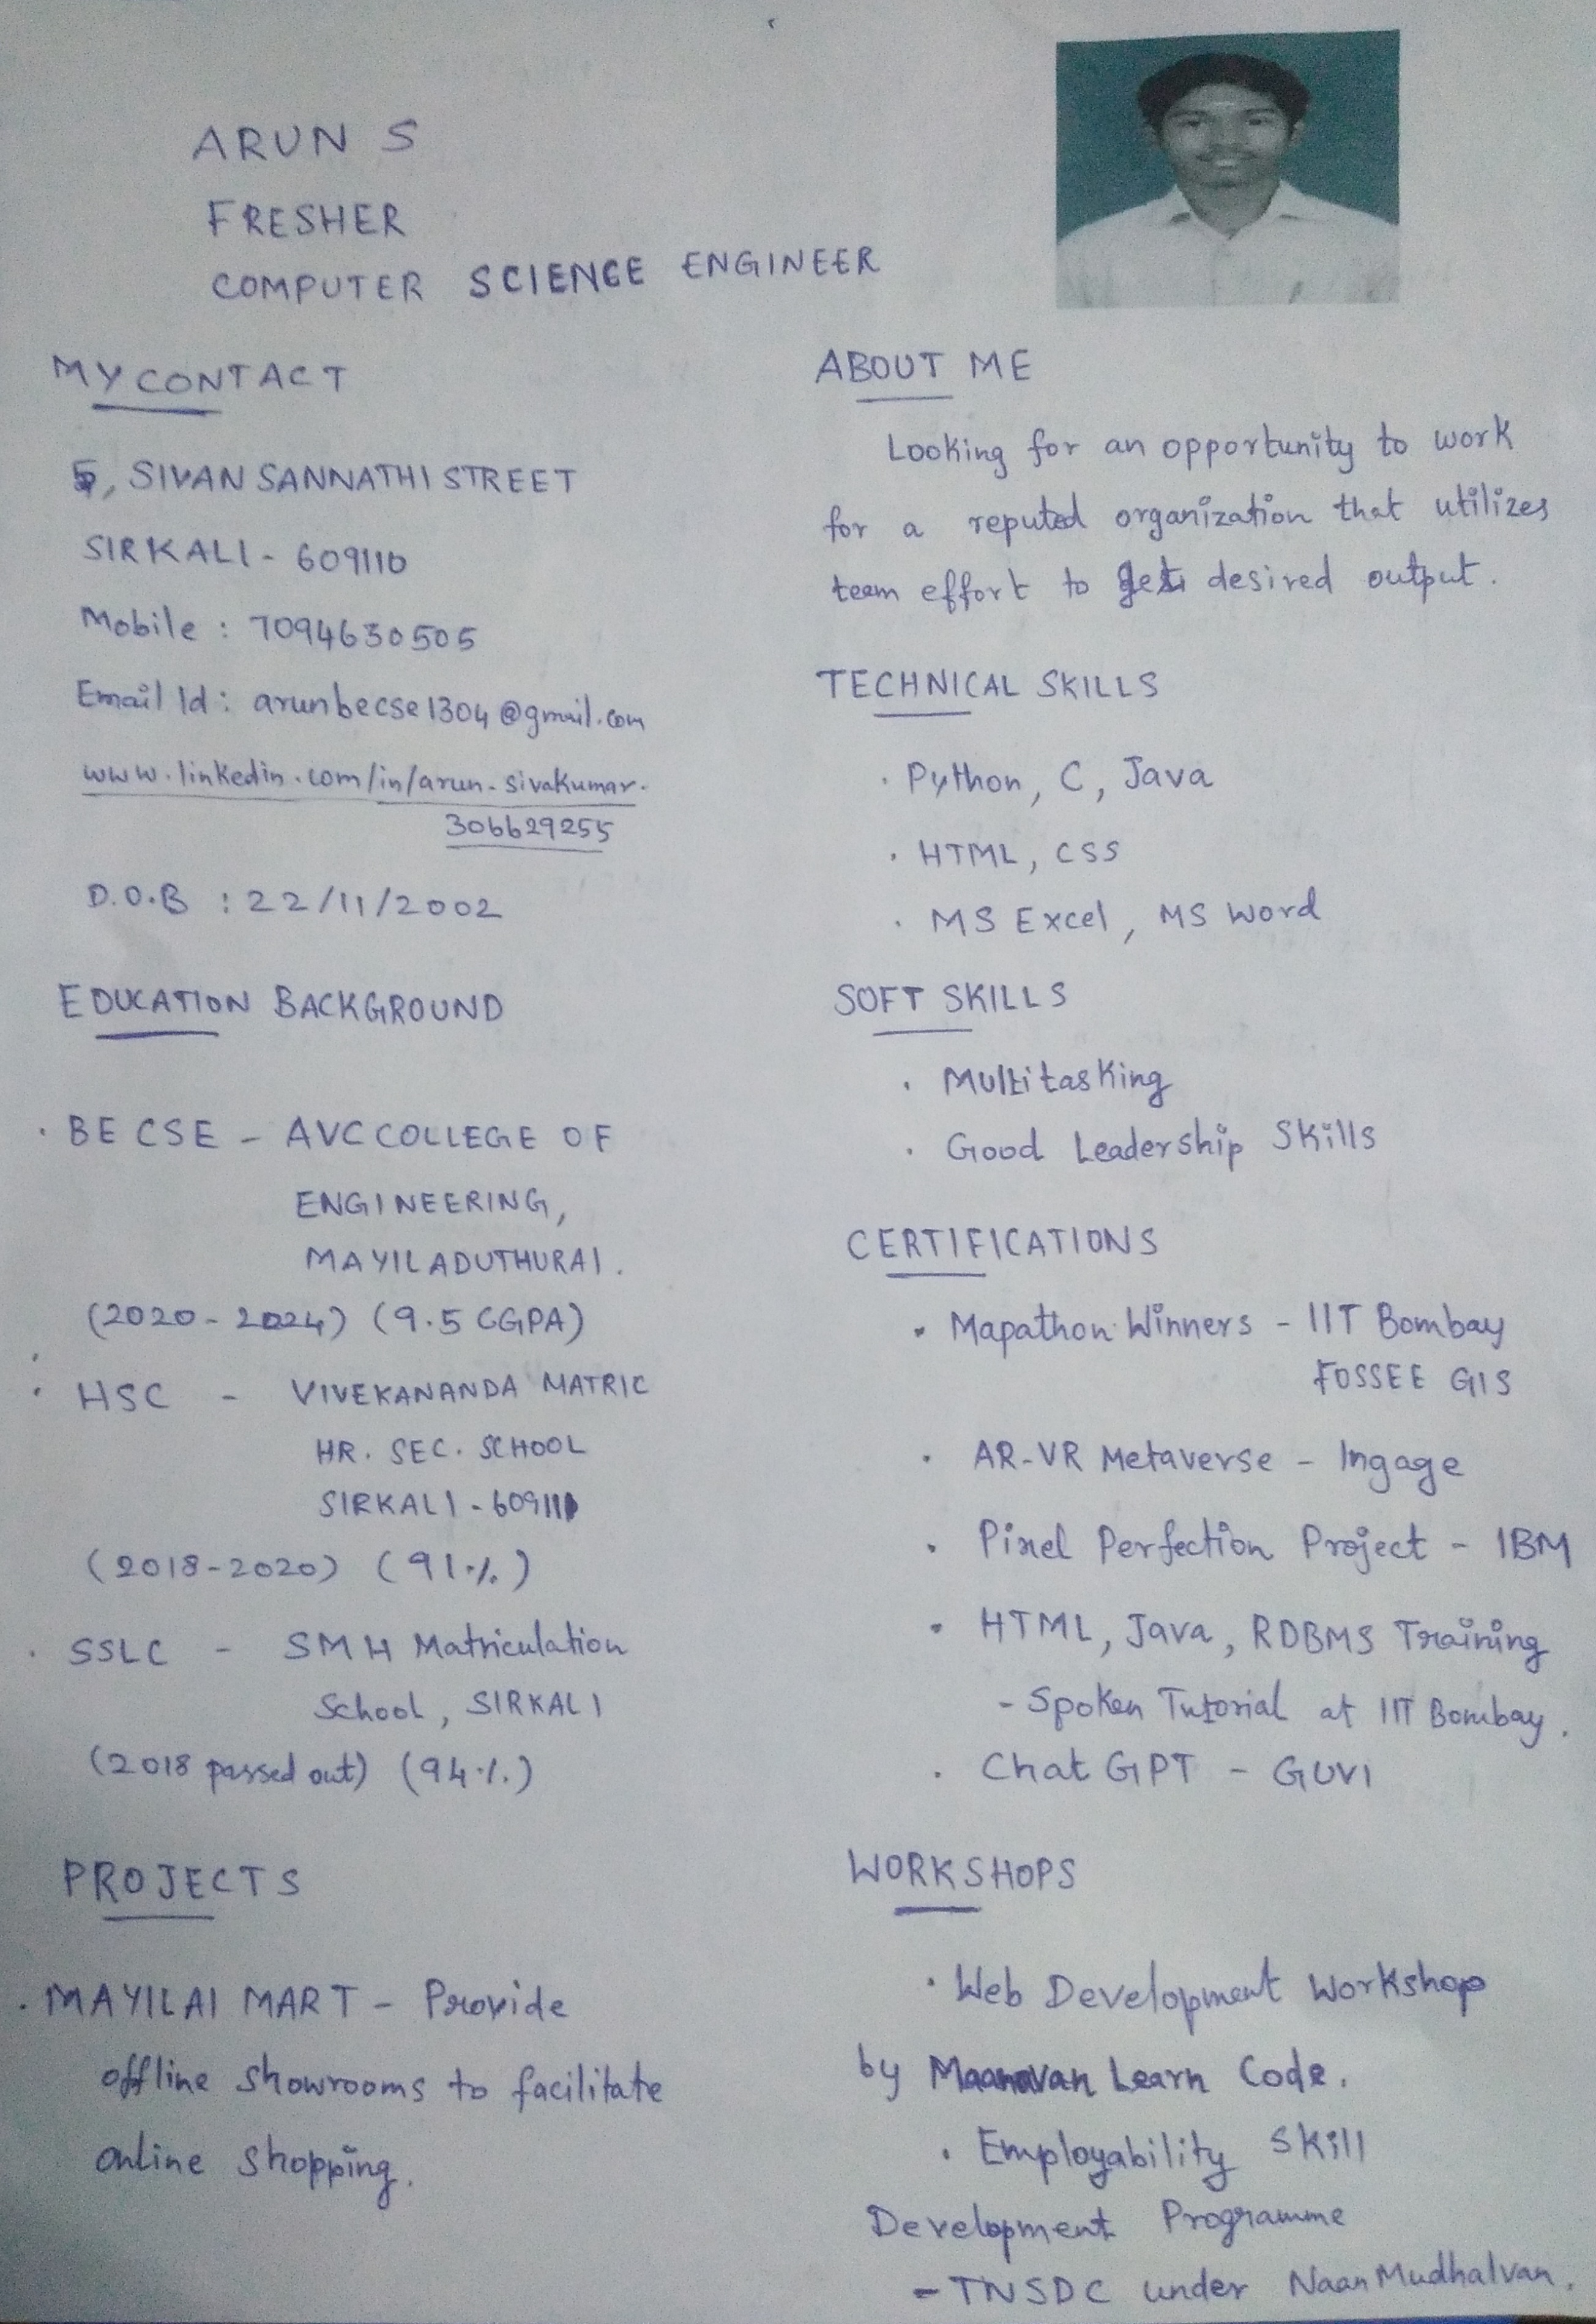 ARUN S
FRESHER
COMPUTER SCIENCE ENGINEER
MY CONTACT
5, SIVAN SANNATHI STREET
SIRKALI - 609110
Mobile : 7094630505
Email Id : arunbecse1304@gmail.com
www.linkedin.com/in/arun-sivakumar-
306629255
D.O.B : 22/11/2002
EDUCATION BACKGROUND
· BE CSE - AVC COLLEGE OF
ENGINEERING,
MAYILADUTHURAI.
(2020 - 2024) (9.5 CGPA)
· HSC - VIVEKANANDA MATRIC
HR. SEC. SCHOOL
SIRKALI - 609111
(2018-2020) (91%)
· SSLC - SMH Matriculation
School, SIRKALI
(2018 passed out) (94%)
PROJECTS
· MAYILAI MART - Provide
offline showrooms to facilitate
online shopping.
ABOUT ME
Looking for an opportunity to work
for a reputed organization that utilizes
team effort to get desired output.
TECHNICAL SKILLS
· Python, C, Java
· HTML, CSS
· MS Excel, MS Word
SOFT SKILLS
· Multitasking
· Good Leadership Skills
CERTIFICATIONS
· Mapathon Winners - IIT Bombay
FOSSEE GIS
· AR-VR Metaverse - Ingage
· Pixel Perfection Project - IBM
· HTML, Java, RDBMS Training
- Spoken Tutorial at IIT Bombay.
· Chat GPT - GUVI
WORKSHOPS
· Web Development Workshop
by Maanavan Learn Code.
· Employability Skill
Development Programme
- TNSDC under Naan Mudhalvan.